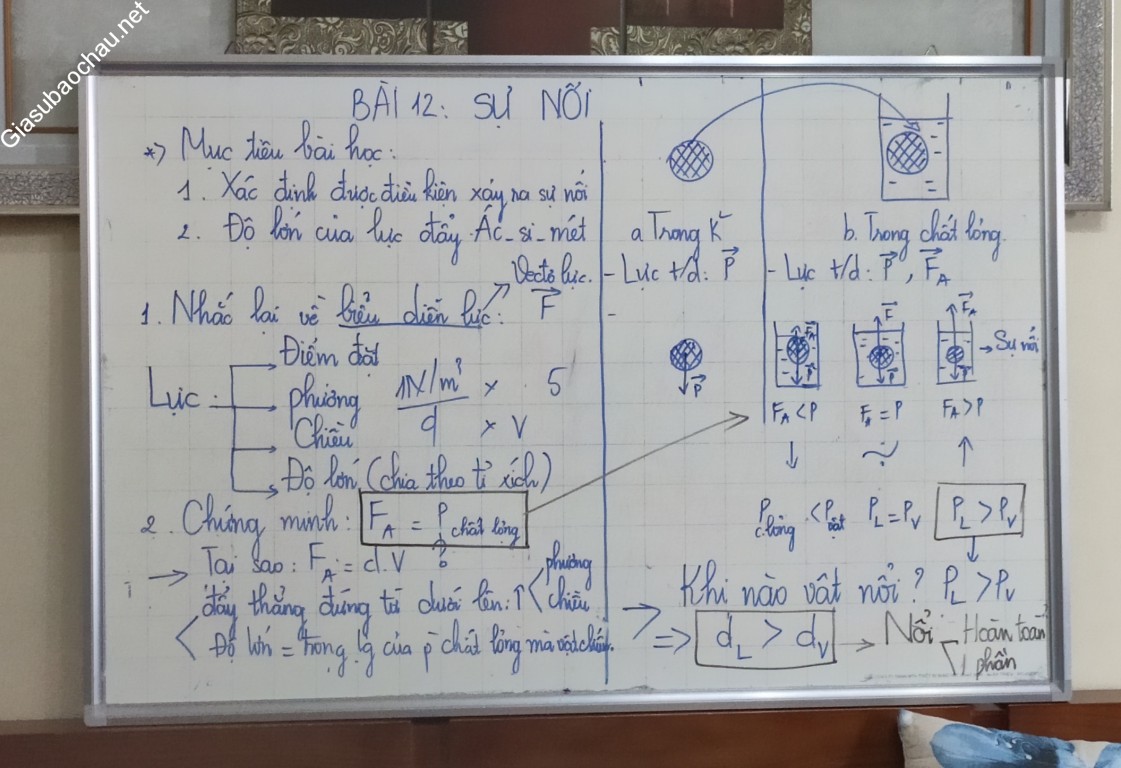 Giasubaochau.net
BÀI 12: SỰ NỔI
*) Mục tiêu bài học:
1. Xác định được điều kiện xảy ra sự nổi
2. Độ lớn của lực đẩy Ác_si_mét
Vectơ lực.
1. Nhắc lại về biểu diễn lực: F
Lực:
Điểm đặt
phương
Chiều
Độ lớn (chia theo tỉ xích)
1N/m³ × 5
d × V
2. Chứng minh: F_A = P chất lỏng
Tại sao: F_A = d.V ?
đẩy thẳng đứng từ dưới lên: ↑ < phương
chiều
Độ lớn = trọng lg của p chất lỏng mà vật chiếm.
a. Trong K²
- Lực t/d: P
-
P
b. Trong chất lỏng.
- Lực t/d: P, F_A
F_A
P
F
P
F_A
→ Sự nổi
F_A < P F_A = P F_A > P
↓ ~ ↑
P c.lỏng < P vật P_L = P_V P_L > P_V
Khi nào vật nổi? P_L > P_V
=> d_L > d_V → Nổi
Hoàn toàn
1 phần